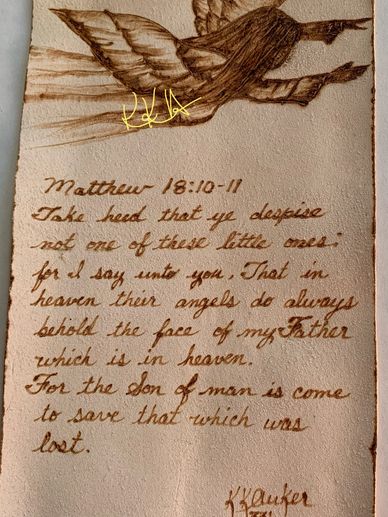 KKA
Matthew 18:10-11
Take heed that ye despise
not one of these little ones;
for I say unto you, That in
heaven their angels do always
behold the face of my Father
which is in heaven.
For the Son of man is come
to save that which was
lost.
KKAuker